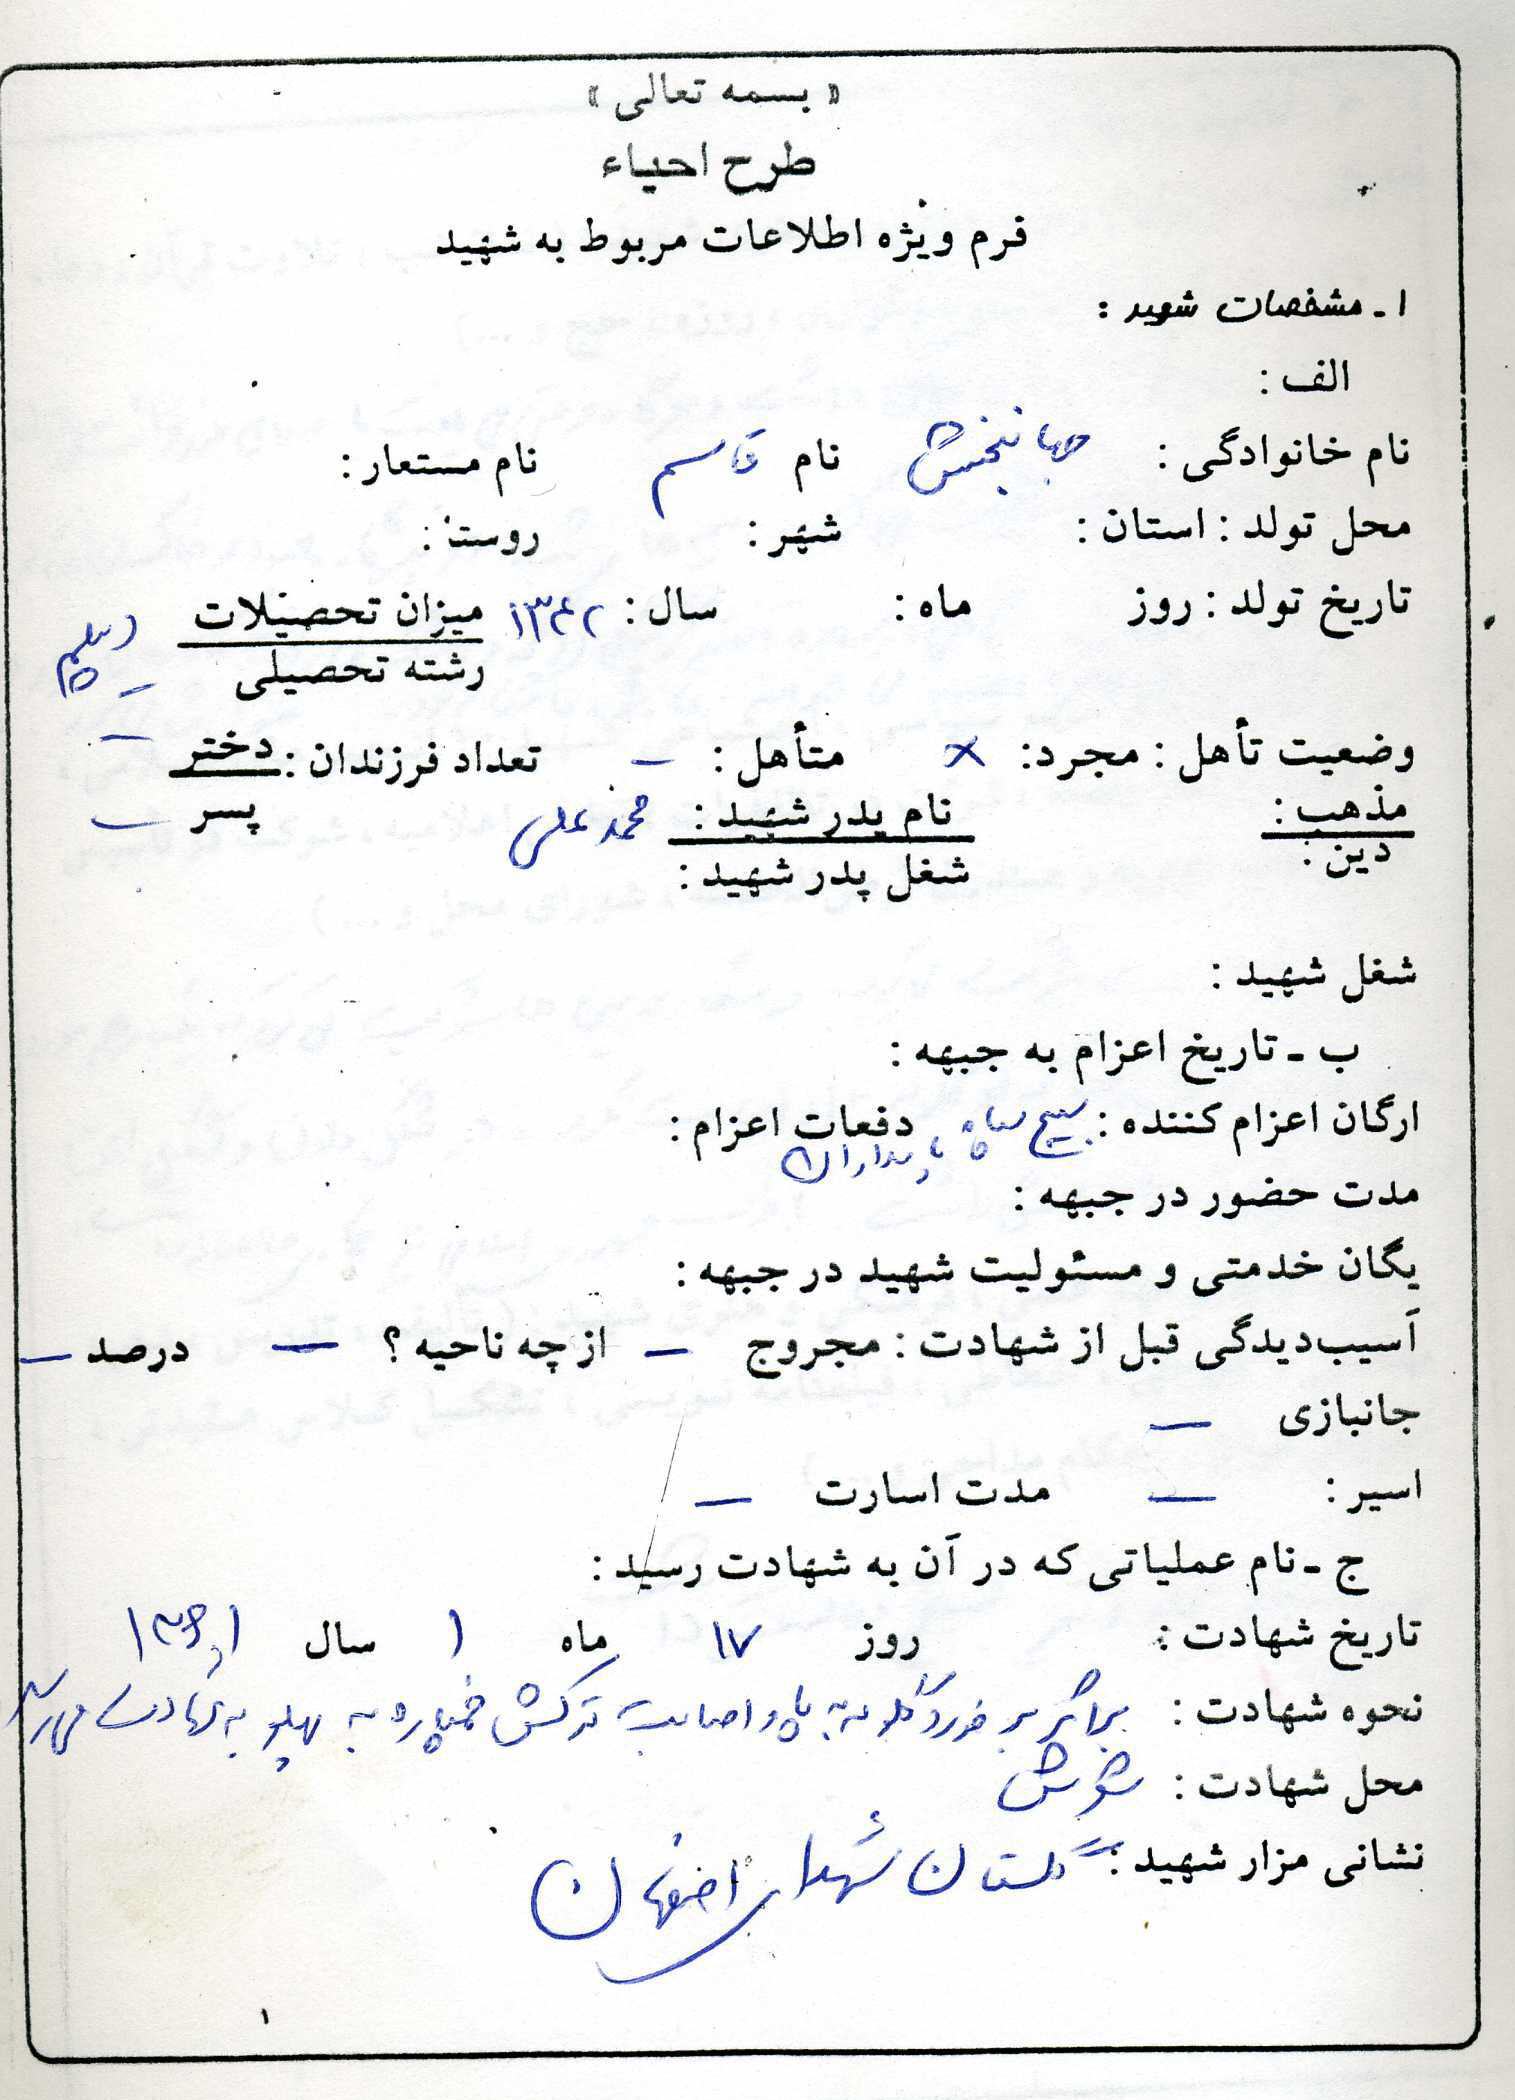 « بسمه تعالی »
طرح احیاء
فرم ویژه اطلاعات مربوط به شهید
۱ ـ مشخصات شهید :
الف :
نام خانوادگی : جهانبخش نام قاسم نام مستعار :
محل تولد : استان : شهر : روستا :
تاریخ تولد : روز ماه : سال : ۱۳۴۲ میزان تحصیلات دیپلم
رشته تحصیلی –
وضعیت تأهل : مجرد : × متأهل : – تعداد فرزندان : دختر –
مذهب : نام پدر شهید : محمدعلی پسر –
دین : شغل پدر شهید :
شغل شهید :
ب ـ تاریخ اعزام به جبهه :
ارگان اعزام کننده : بسیج سپاه پاسداران دفعات اعزام :
مدت حضور در جبهه :
یگان خدمتی و مسئولیت شهید در جبهه :
آسیب‌دیدگی قبل از شهادت : مجروح – از چه ناحیه ؟ – درصد –
جانبازی –
اسیر : – مدت اسارت –
ج ـ نام عملیاتی که در آن به شهادت رسید :
تاریخ شهادت : روز ۱۷ ماه ۱ سال ۱۳۶۱
نحوه شهادت : براثر برخورد گلوله به پا و اصابت ترکش خمپاره به پهلو به شهادت میرسد
محل شهادت : شوش
نشانی مزار شهید : گلستان شهدای اصفهان
۱